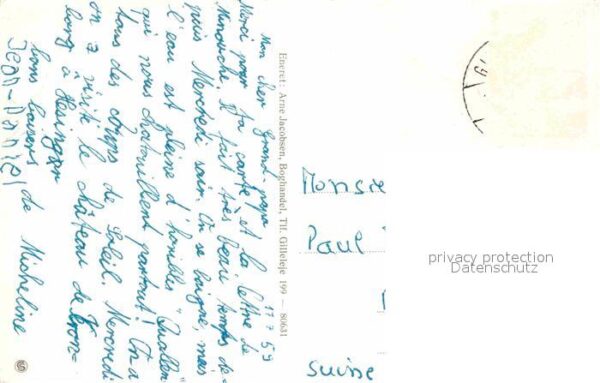 17 7 59
Mon cher Grand-papa
Merci pour ta carte et la lettre de
Minouche. Il fait très beau temps de-
puis Mercredi soir. On se baigne, mais
l'eau est pleine d'horribles "Quallen"
qui nous chatouillent partout! On a
tous des coups de soleil. Mercredi
on a visité le château de Kron-
borg à Helsingör
bons baisers de Micheline
JEAN-DANIEL
Eneret: Arne Jacobsen, Boghandel, Tlf. Gilleleje 199 — 80631
Monsie
Paul
suisse
privacy protection
Datenschutz